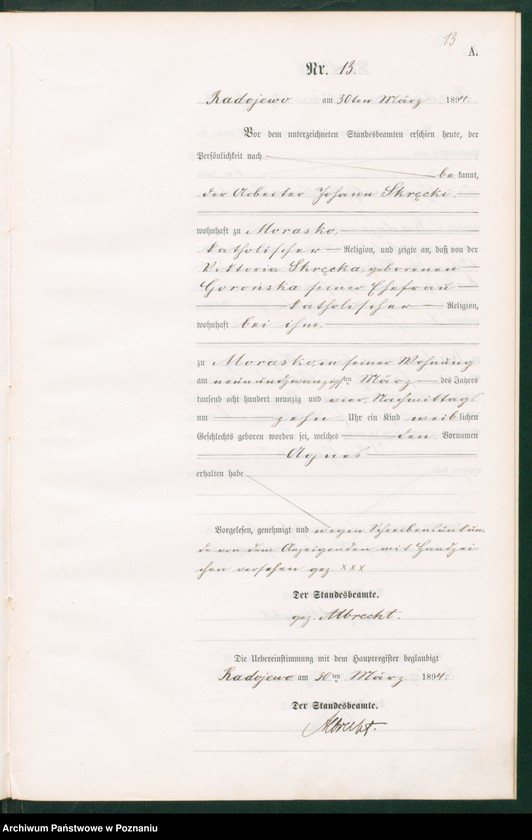 13
A.
Nr. 13.
Radojewo am 30ten März 1894.
Vor dem unterzeichneten Standesbeamten erschien heute, der
Persönlichkeit nach
be kannt,
der Arbeiter Johann Skręcki,
wohnhaft zu Morasko,
katholischer Religion, und zeigte an, daß von der
Viktoria Skręcka, geborenen
Gorońska seiner Ehefrau
katholischer Religion,
wohnhaft bei ihm
zu Morasko, in seiner Wohnung
am neunundzwanzigsten März des Jahres
tausend acht hundert neunzig und vier, Nachmittags
um zehn Uhr ein Kind weiblichen
Geschlechts geboren worden sei, welches den Vornamen
Agnes
erhalten habe
Vorgelesen, genehmigt und wegen Schreibensunkun-
de von dem Anzeigenden mit Handzei-
chen versehen gez. xxx
Der Standesbeamte.
gez. Albrecht.
Die Uebereinstimmung mit dem Hauptregister beglaubigt
Radojewo am 30ten März 1894.
Der Standesbeamte.
Albrecht.
Archiwum Państwowe w Poznaniu